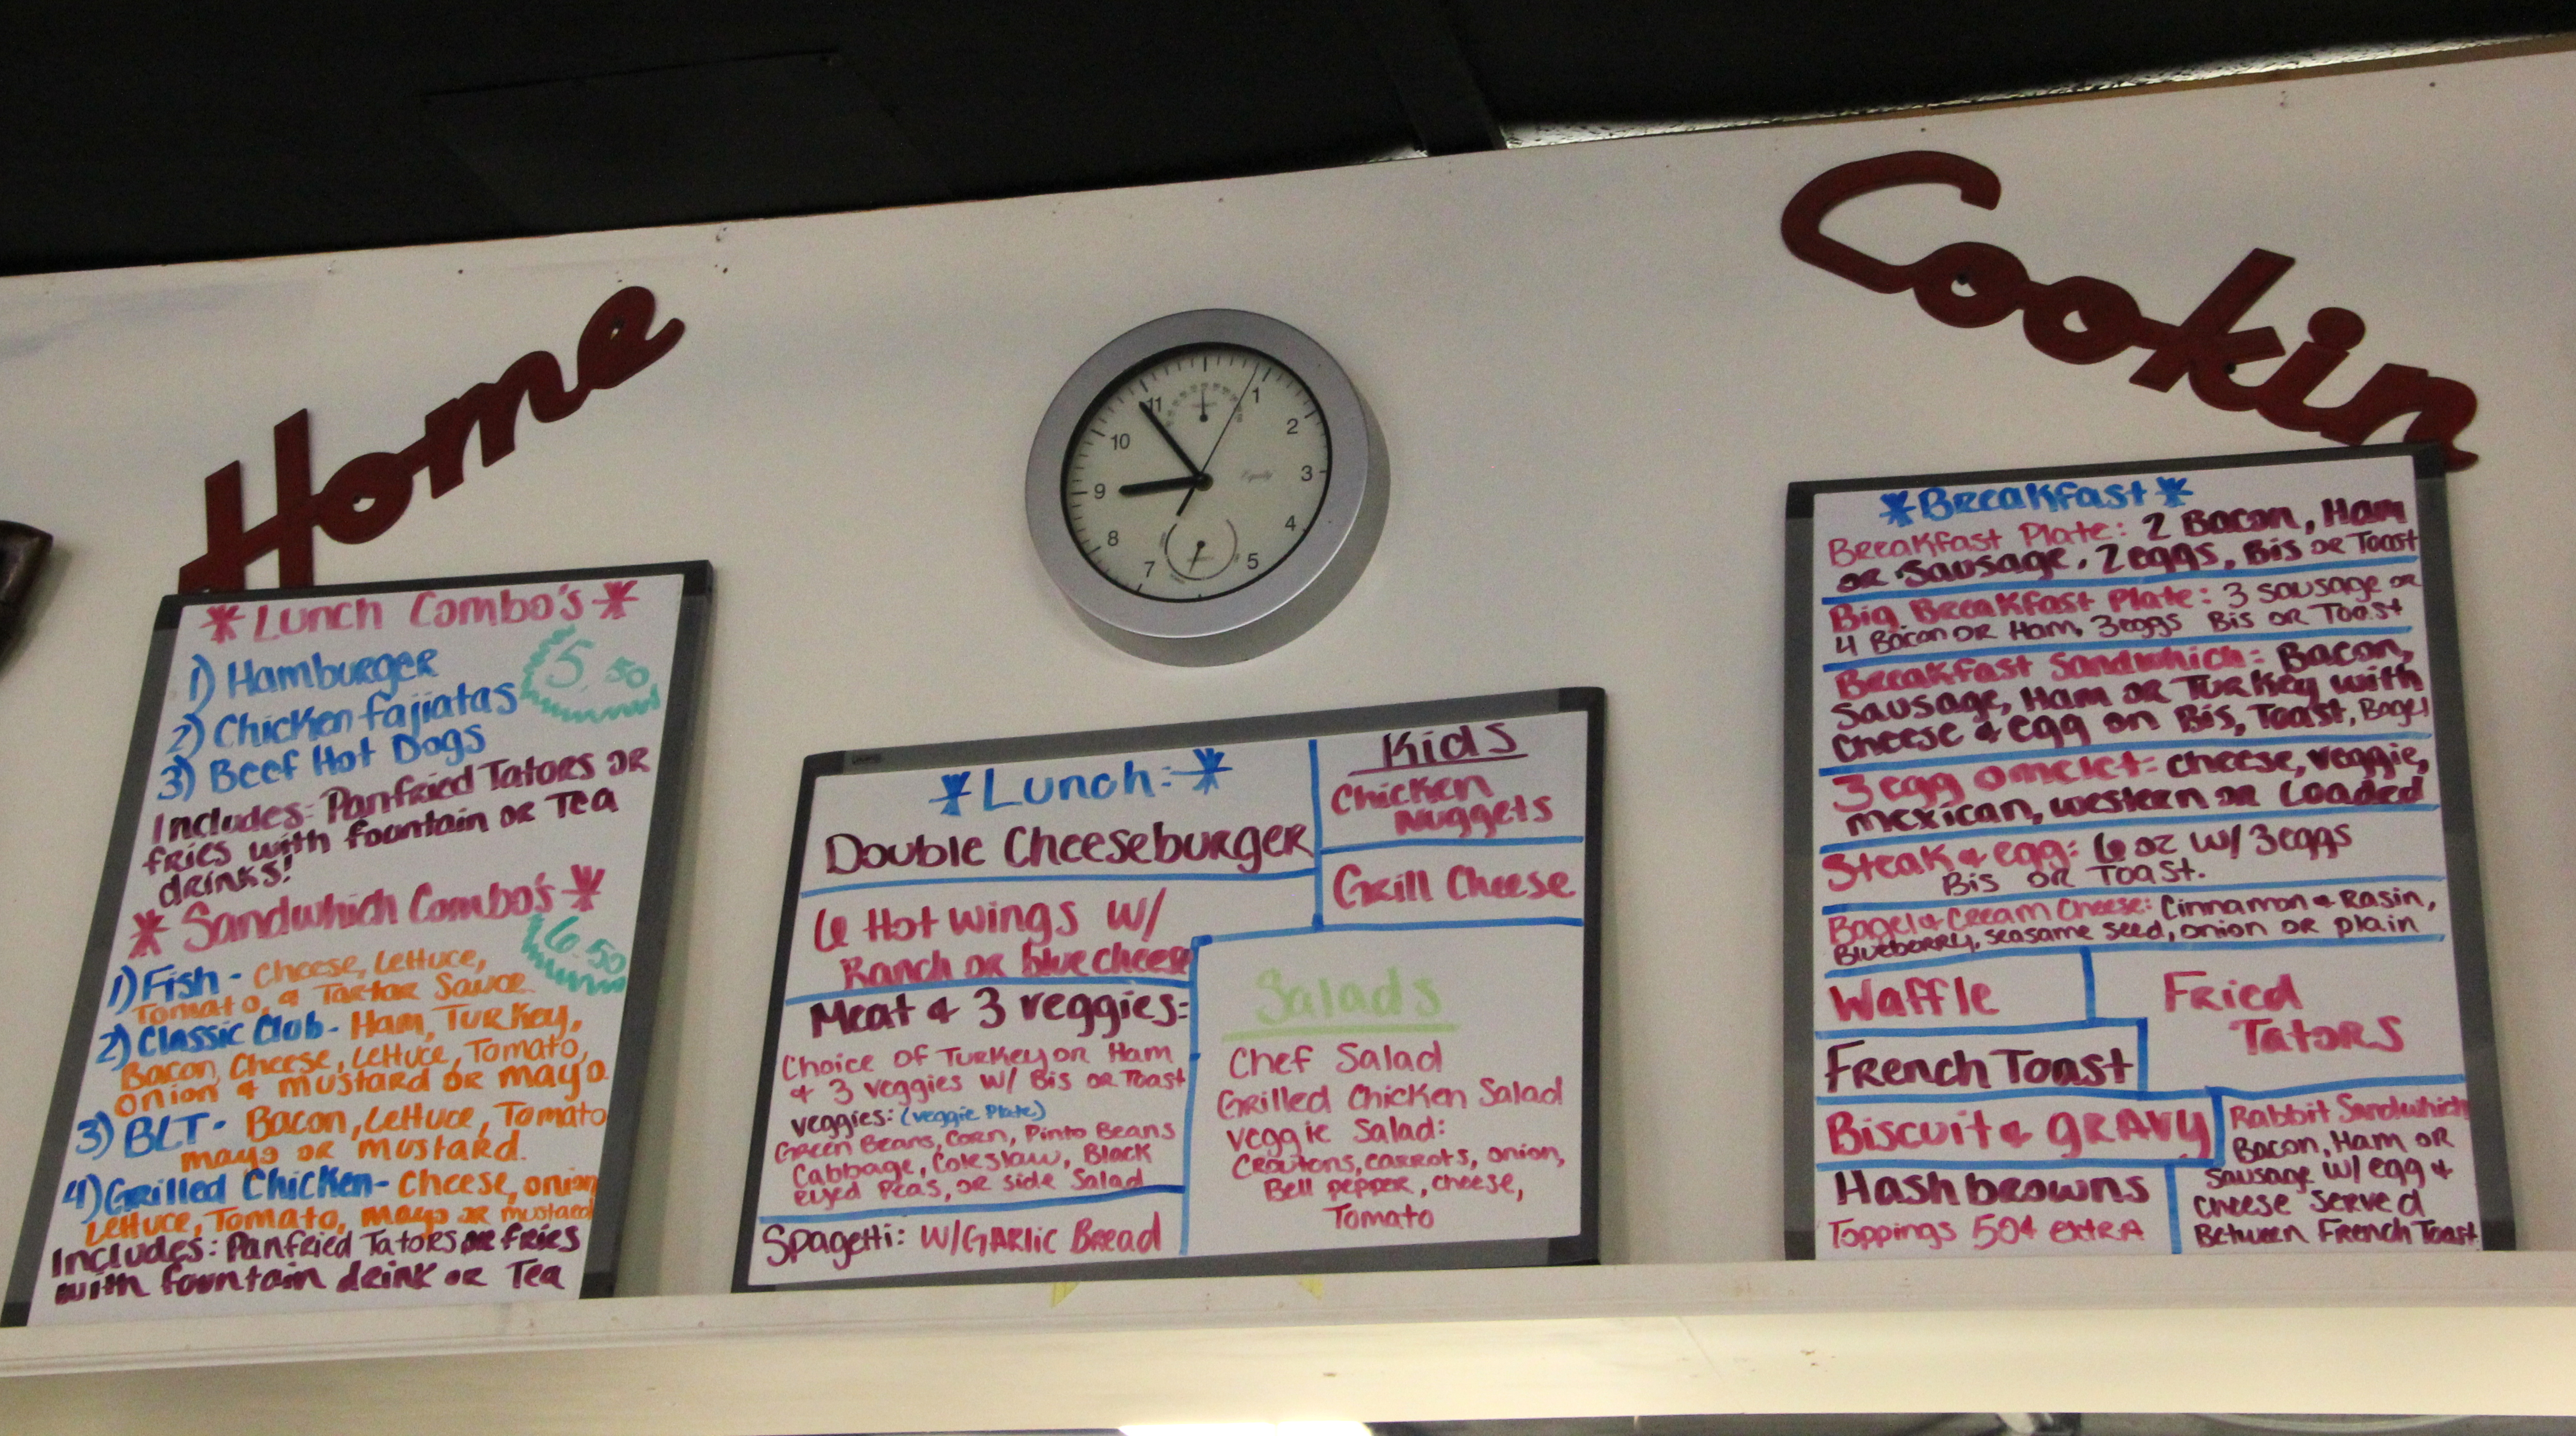 Home
Cookin
11
1
10
2
9
3
8
4
7
5
Lunch Combo's
1) Hamburger
5.50
2) Chicken fajiatas
3) Beef Hot Dogs
Includes: Panfried Tators OR
fries with fountain or Tea
drinks!
Sandwhich Combo's
6.50
1) Fish - Cheese, Lettuce,
Tomato, & Tartar Sauce
2) Classic Club - Ham, Turkey,
Bacon, Cheese, Lettuce, Tomato,
onion & mustard or mayo.
3) BLT - Bacon, Lettuce, Tomato
mayo or mustard.
4) Grilled Chicken - Cheese, onion
Lettuce, Tomato, mayo or mustard
Includes: Panfried Tators or fries
with fountain drink or Tea
Lunch:
Double Cheeseburger
6 Hot wings w/
Ranch or blue cheese
Meat & 3 veggies:
Choice of Turkey or Ham
& 3 veggies w/ Bis or Toast
veggies: (veggie Plate)
Green Beans, Corn, Pinto Beans
Cabbage, Coleslaw, Black
eyed Peas, or side Salad
Spagetti: w/Garlic Bread
Kids
Chicken
Nuggets
Grill Cheese
Salads
Chef Salad
Grilled Chicken Salad
veggie Salad:
Croutons, carrots, onion,
Bell pepper, cheese,
Tomato
Breakfast
Breakfast Plate: 2 Bacon, Ham
or Sausage, 2 eggs, Bis or Toast
Big Breakfast Plate: 3 sausage or
4 Bacon or Ham, 3 eggs Bis or Toast
Breakfast Sandwhich: Bacon,
Sausage, Ham or Turkey with
cheese & egg on Bis, Toast, Bagel
3 egg omelet: cheese, veggie,
mexican, western or Loaded
Steak & egg: 6 oz w/ 3 eggs
Bis or Toast.
Bagel & Cream Cheese: Cinnamon & Rasin,
Blueberry, seasame seed, onion or plain
Waffle
Fried
Tators
French Toast
Biscuit & gravy
Hashbrowns
Toppings 50¢ extra
Rabbit Sandwhich
Bacon, Ham or
Sausage w/ egg &
cheese served
Between French Toast